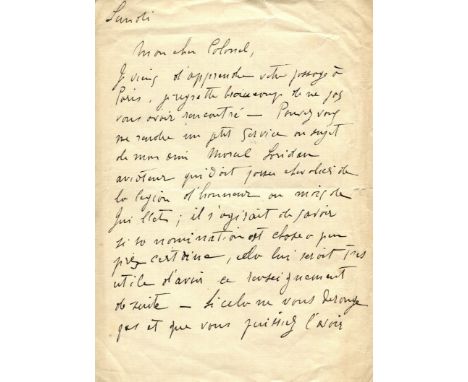 Lundi
Mon cher Colonel,
Je viens d'apprendre votre passage à
Paris, je regrette beaucoup de ne pas
vous avoir rencontré — Pouvez vous
me rendre un ptit service au sujet
de mon ami Marcel
aviateur qui doit passer chevalier de
la légion d'honneur au mois de
Juillet ; il s'agirait de savoir
si sa nomination est chose à peu
près certaine, cela lui serait très
utile d'avoir ce renseignement
de suite — Si cela ne vous dérange
pas et que vous puissiez l'avoir